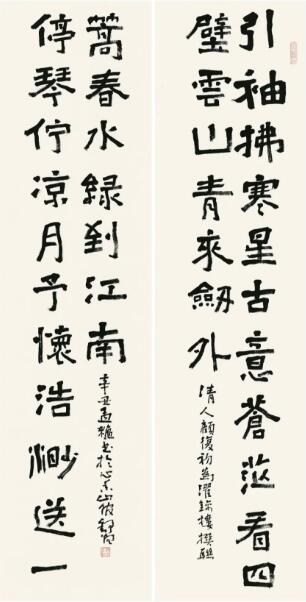 引袖拂寒星古意蒼茫看四
壁雲山青來劒外
清人顧復初為濯錦樓撰聯
停琴佇涼月予懷浩渺送一
篙春水綠到江南
辛丑孟龝書於